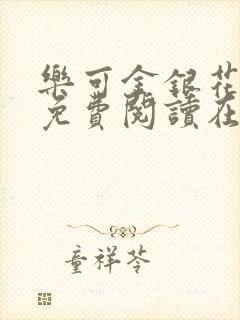 樂可金銀花
免費閱讀在
童祥苓